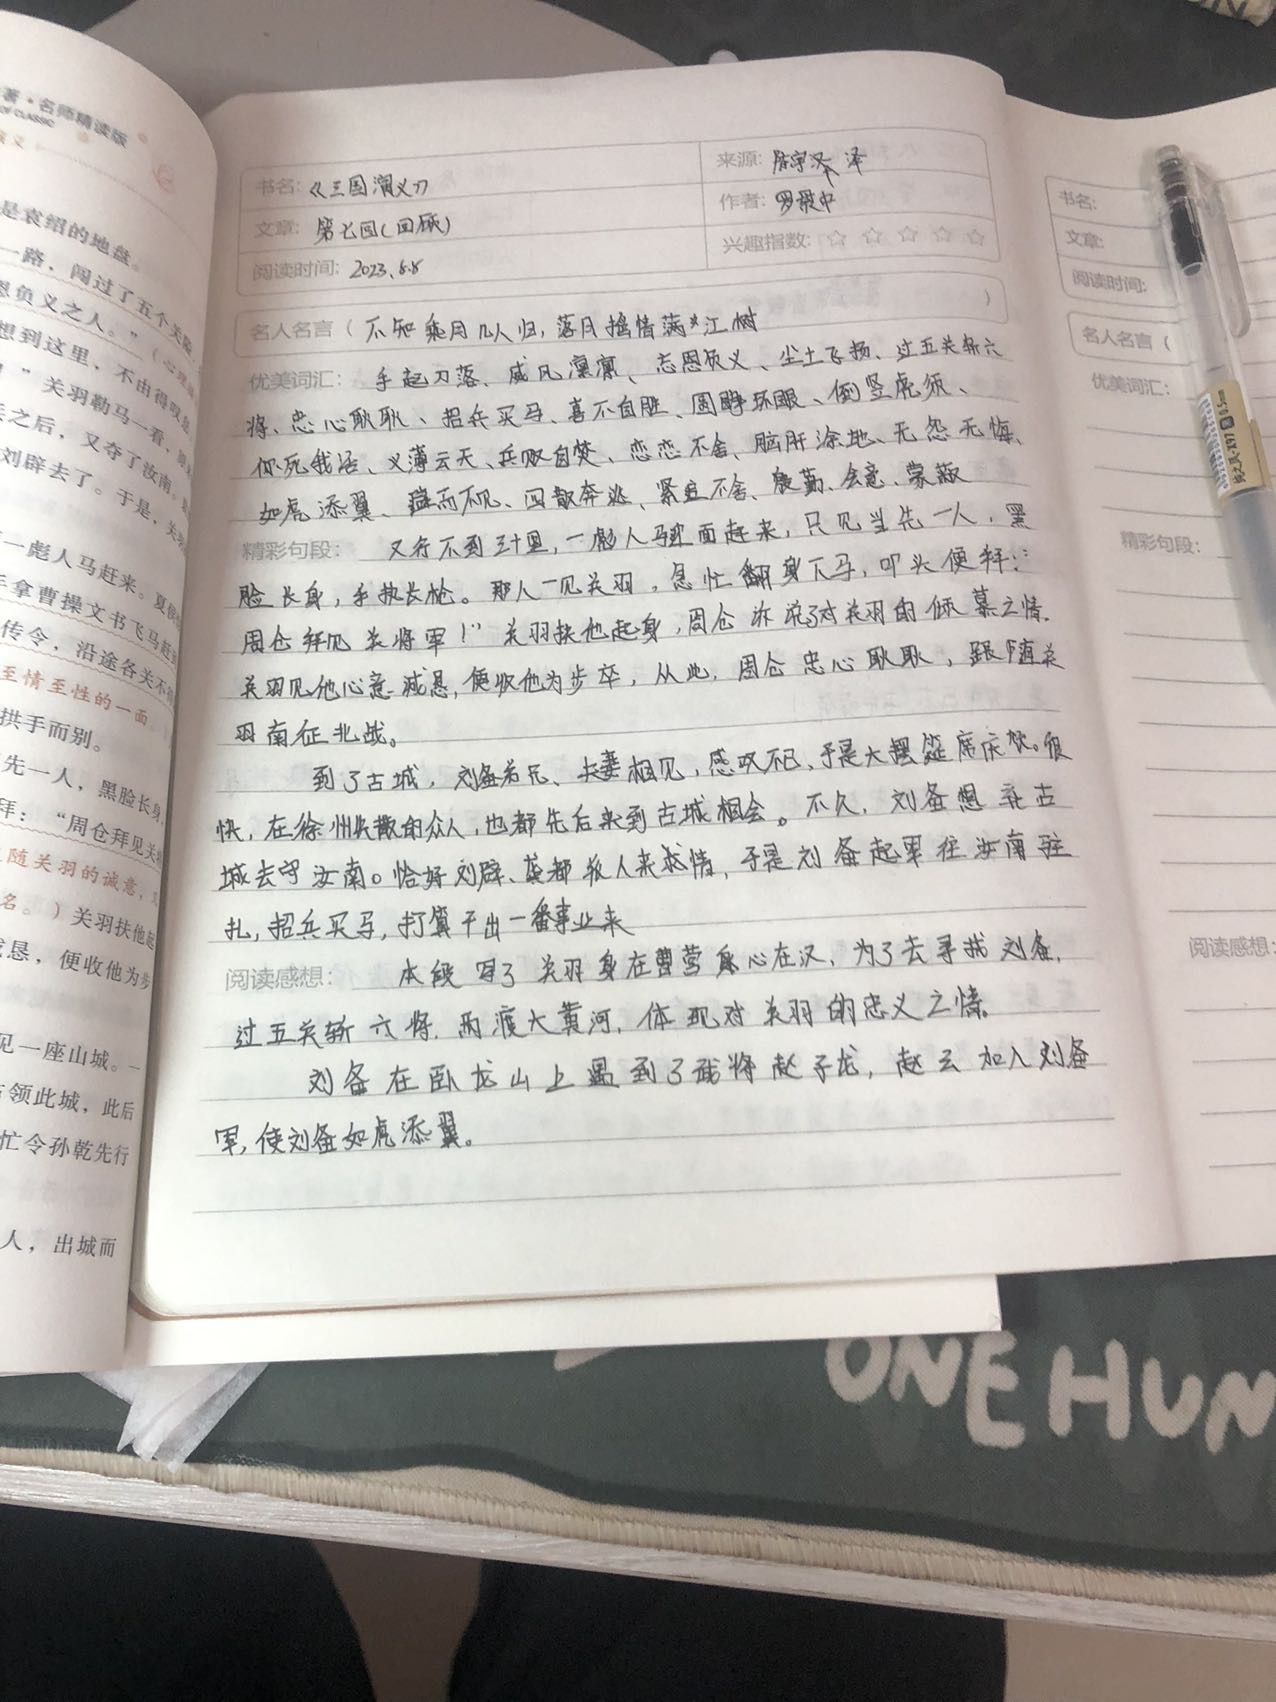 著·名师精读版
OF CLASSIC
是袁绍的地盘。
一路，闯过了五个关
恩负义之人。”（心理
想到这里，不由得叹息
！”关羽勒马一看，原
兵之后，又夺了汝南。
刘辟去了。于是，关
一彪人马赶来。夏侯
手拿曹操文书飞马赶到
传令，沿途各关不得
至情至性的一面。
拱手而别。
先一人，黑脸长身，
拜：“周仓拜见关将
随关羽的诚意，
名。）关羽扶他起
恳，便收他为步
见一座山城。一
占领此城，此后
忙令孙乾先行
人，出城而
书名：《三国演义》
来源：陈宇 泽
文章：第七回（回顾）
作者：罗贯中
阅读时间：2023.8.8
兴趣指数：☆ ☆ ☆ ☆ ☆
名人名言（不知乘月几人归，落月摇情满江树）
优美词汇：手起刀落、威风凛凛、忘恩负义、尘土飞扬、过五关斩六
将、忠心耿耿、招兵买马、喜不自胜、圆睁环眼、倒竖虎须、
你死我活、义薄云天、兵败自焚、恋恋不舍、脑肝涂地、无怨无悔、
如虎添翼、避而不见、四散奔逃、紧追不舍、殷勤、会意、蒙蔽
精彩句段：又行不到三十里，一彪人马迎面赶来，只见当先一人，黑
脸长身，手执长枪。那人一见关羽，急忙翻身下马，叩头便拜：“
周仓拜见关将军！”关羽扶他起身，周仓诉说了对关羽的倾慕之情。
关羽见他心意诚恳，便收他为步卒，从此，周仓忠心耿耿，跟随关
羽南征北战。
到了古城，刘备弟兄、夫妻相见，感叹不已、于是大摆筵席庆贺。很
快，在徐州失散的众人，也都先后来到古城相会。不久，刘备想弃古
城去守汝南。恰好刘辟、龚都派人来求情，于是刘备起军往汝南驻
扎，招兵买马，打算干出一番事业来
阅读感想：本段写了关羽身在曹营心在汉，为了去寻找刘备，
过五关斩六将，两渡大黄河，体现对关羽的忠义之情。
刘备在卧龙山上遇到了武将赵子龙，赵云加入刘备
军，使刘备如虎添翼。
书名：
文章：
阅读时间：
名人名言（
优美词汇：
精彩句段：
阅读感想：
0.5mm
ONE HUN